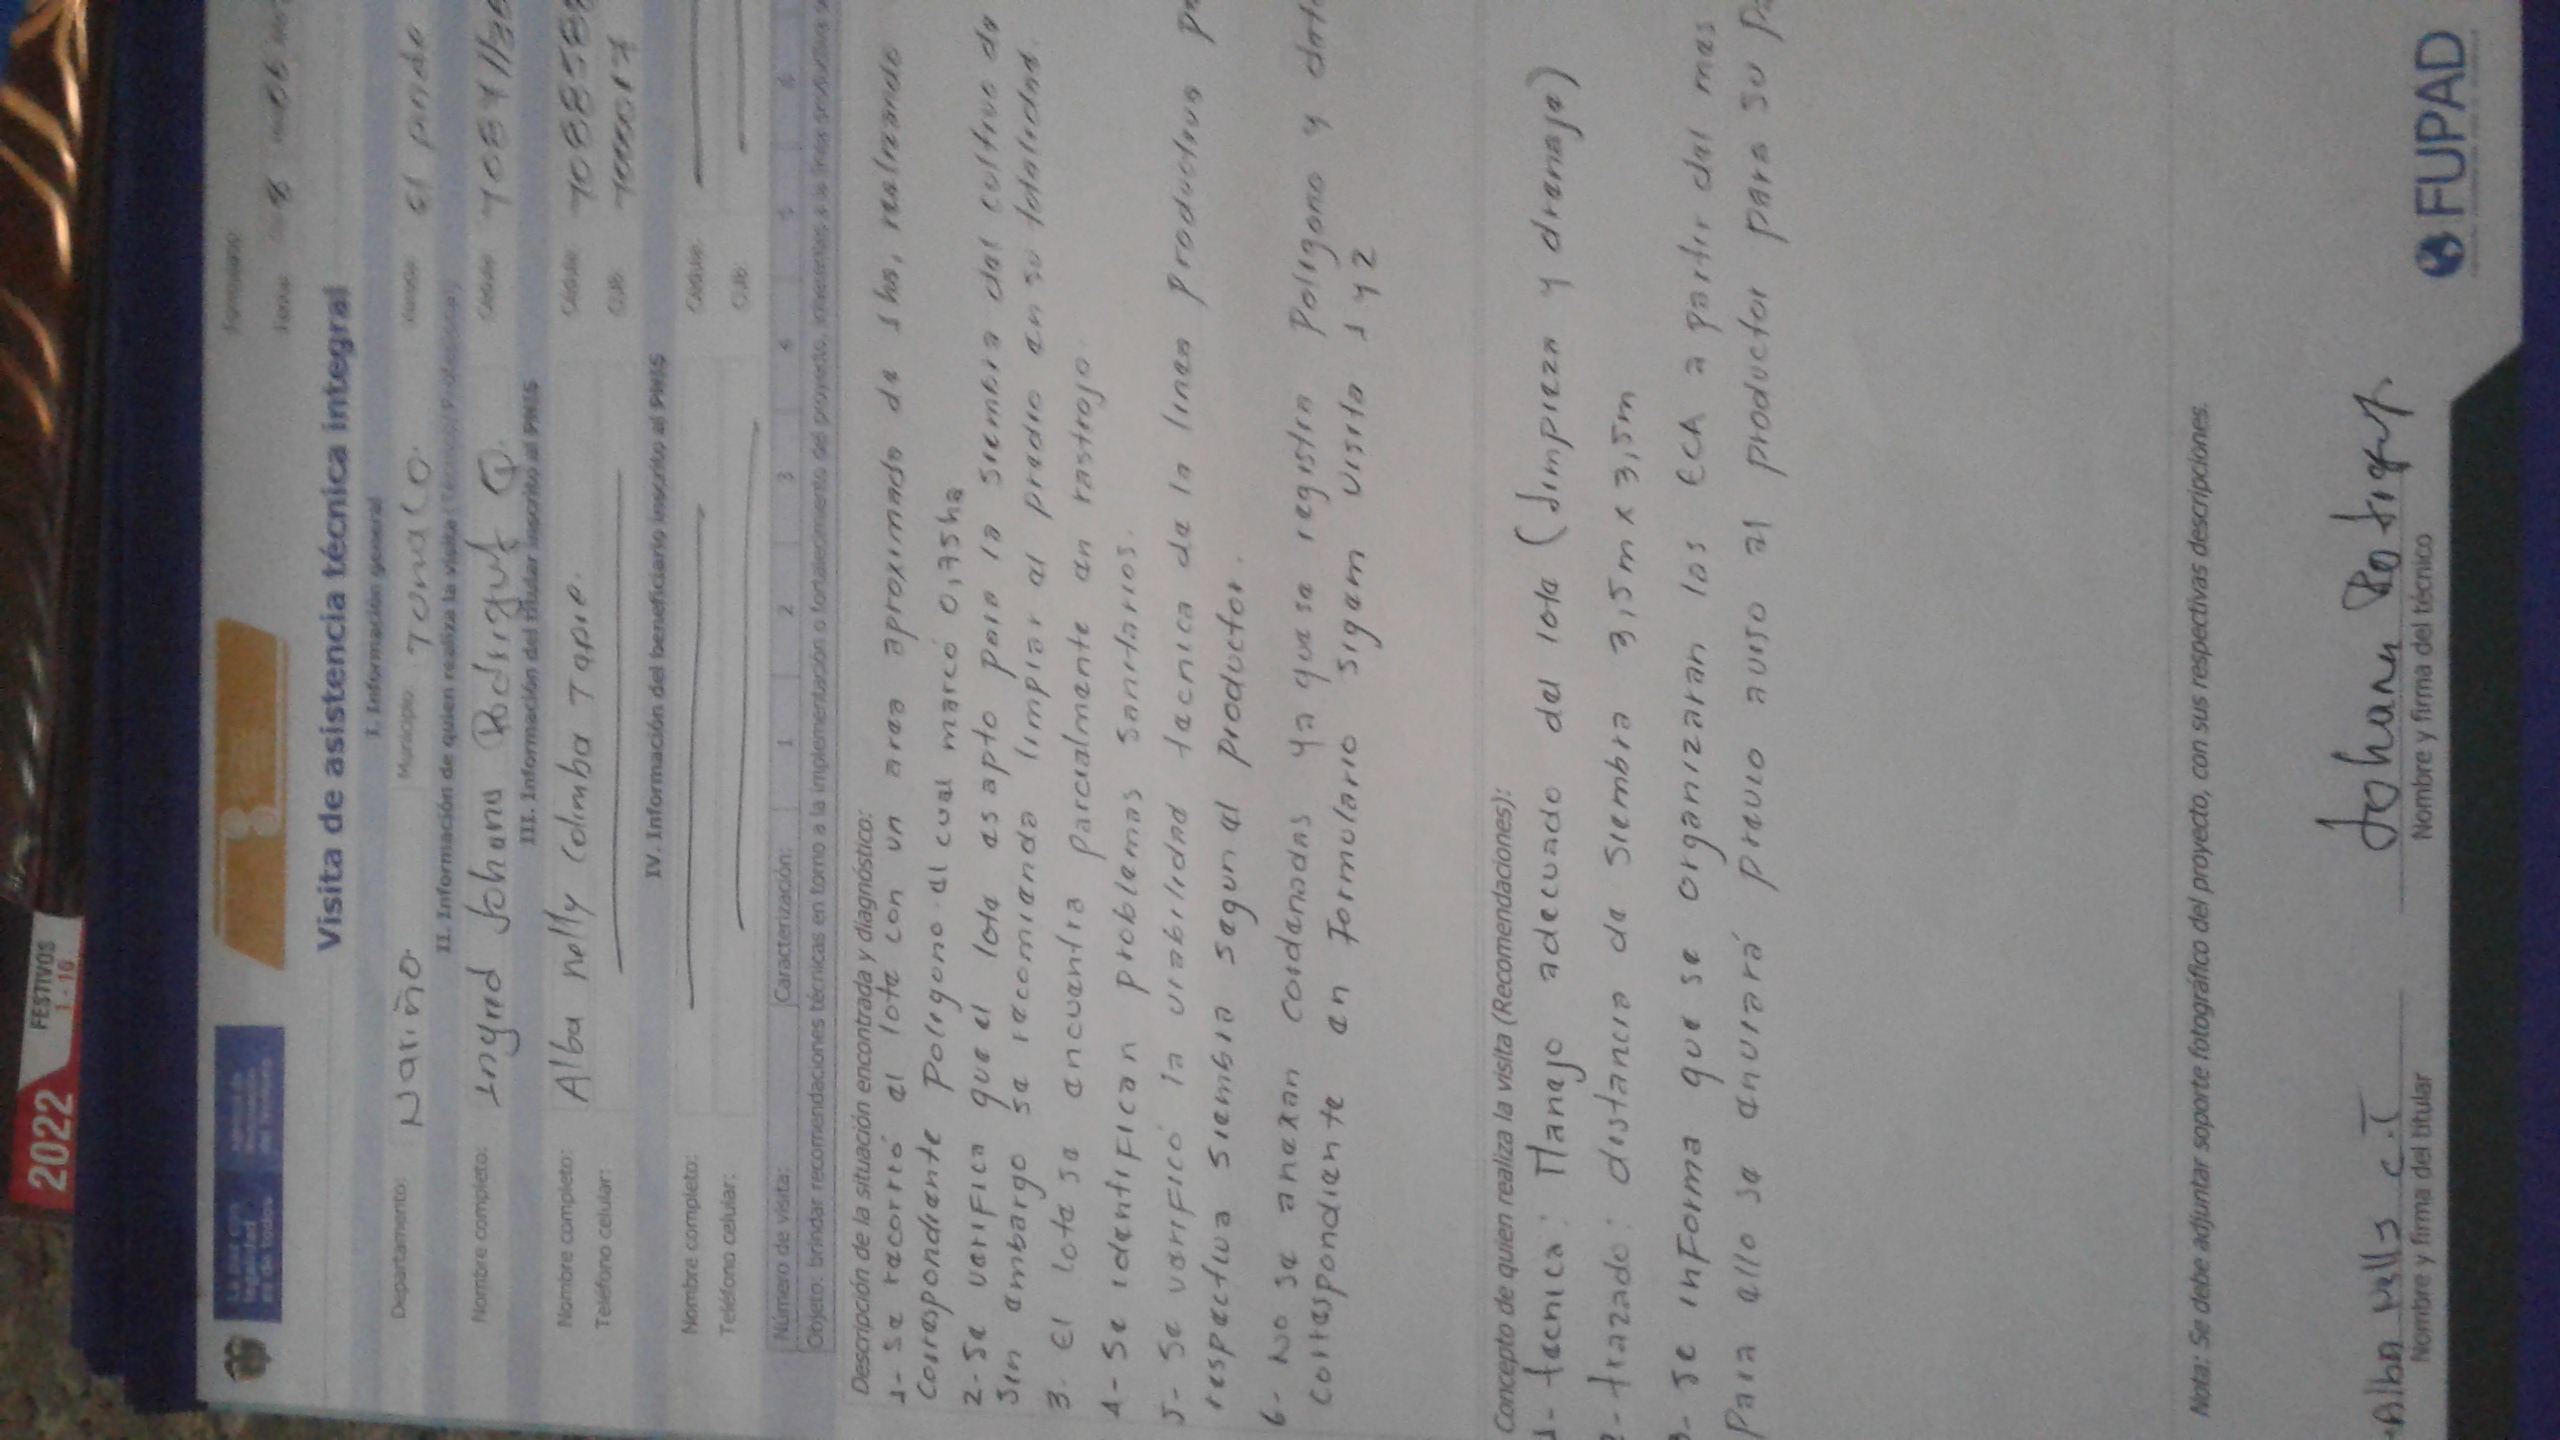 2022
FESTIVOS
1 - 10
Formulario:
Fecha: 8
Visita de asistencia técnica integral
I. Información general
Departamento: Nariño. Municipio: Tumaco. Vereda: el pinde
II. Información de quien realiza la visita (Técnico/Profesional)
Nombre completo: Ingrid Johana Rodriguez Q. Cédula:
III. Información del titular inscrito al PNIS
Nombre completo: Alba nelly Colimba Tapie. Cédula:
Teléfono celular: CUB:
IV. Información del beneficiario inscrito al PNIS
Nombre completo: Cédula:
Teléfono celular: CUB:
Número de visita: Caracterización: 1 2 3 4 5 6
Objeto: brindar recomendaciones técnicas en torno a la implementación o fortalecimiento del proyecto, inherentes a la línea productiva
Descripción de la situación encontrada y diagnóstico:
1- Se recorrió el lote con un area aproximado de 1 ha, realizando
Correspondiente Poligono el cual marcó 0,75ha
2- Se verifica que el lote es apto para la siembra del cultivo de
Sin embargo se recomienda limpiar el predio en su totalidad.
3- El lote se encuentra Parcialmente en rastrojo.
4- Se identifican problemas Sanitarios.
5- Se verificó la viabilidad tecnica de la linea Productiva
respectiva Siembra segun el Productor.
6- No se anexan cordenadas ya que se registra Poligono y
Correspondiente en Formulario Sigam visita 1 y 2
Concepto de quien realiza la visita (Recomendaciones):
1- tecnica: Manejo adecuado del lote (limpieza y drenaje)
2- trazado: distancia de Siembra 3,5m x 3,5m
3- Se informa que se organizaran las ECA a partir del mes
Para ello se enviará previo aviso al productor para su
Nota: Se debe adjuntar soporte fotográfico del proyecto, con sus respectivas descripciones.
Alba Nelly C.T Johana Rodriguez
Nombre y firma del titular Nombre y firma del técnico
FUPAD